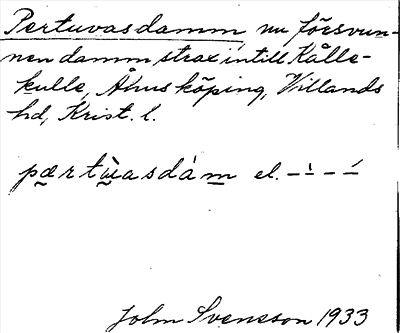 Pertuvasdamm, nu försvun-
nen damm strax intill Kålle-
kulle, Åhus köping, Villands
hd, Krist. l.
pærtùasdám el. – ̀ – –́
John Svensson 1933